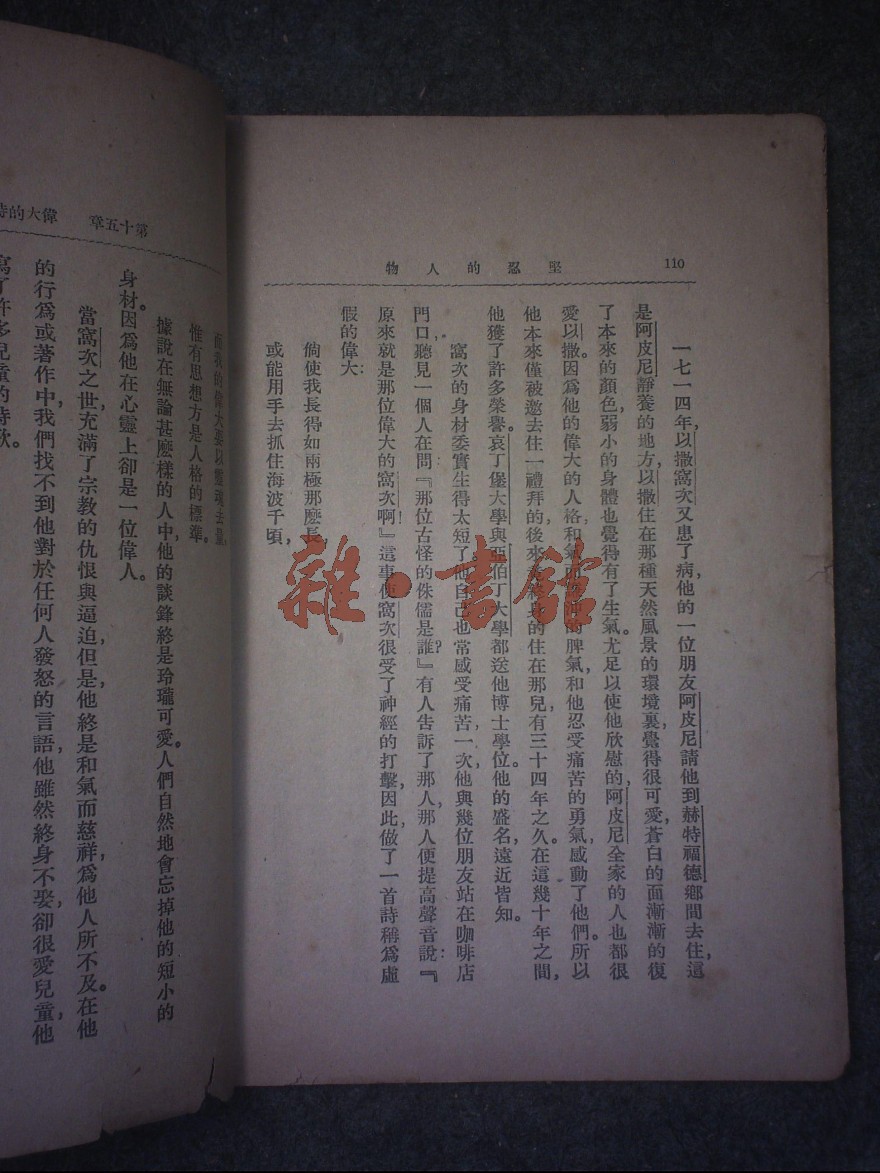 110
堅忍的人物
一七一四年，以撒窩次又患了病，他的一位朋友阿皮尼請他到赫特福德鄉間去住，這
是阿皮尼靜養的地方，以撒住在那種天然風景的環境裏，覺得很可愛，蒼白的面漸漸的復
了本來的顏色，弱小的身體也覺得有了生氣。尤足以使他欣慰的，阿皮尼全家的人也都很
愛以撒。因爲他的偉大的人格和氣而的脾氣和他忍受痛苦的勇氣，感動了他們。所以
他本來僅被邀去住一禮拜的，後來終身的住在那兒有三十四年之久。在這幾十年之間，
他獲了許多榮譽。哀丁堡大學與亞伯丁大學都送他博士學位。他的盛名，遠近皆知。
窩次的身材委實生得太短了，他自己也常感受痛苦一次，他與幾位朋友站在咖啡店
門口，聽見一個人在問『那位古怪的侏儒是誰？』有人告訴了那人，那人便提高聲音說：『
原來就是那位偉大的窩次啊！』這事使窩次很受了神經的打擊，因此，做了一首詩稱爲虛
假的偉大：
倘使我長得如兩極那麼長，
或能用手去抓住海波千頃，
第十五章　偉大的詩
而我的偉大要以靈魂去量，
惟有思想方是人格的標準。
據說在無論甚麼樣的人中，他的談鋒終是玲瓏可愛。人們自然地會忘掉他的短小的
身材。因爲他在心靈上卻是一位偉人。
當窩次之世，充滿了宗教的仇恨與逼迫，但是，他終是和氣而慈祥，爲他人所不及。在他
的行爲或著作中，我們找不到他對於任何人發怒的言語，他雖然終身不娶，卻很愛兒童，他
寫了許多兒童的詩歌。
雜·書館